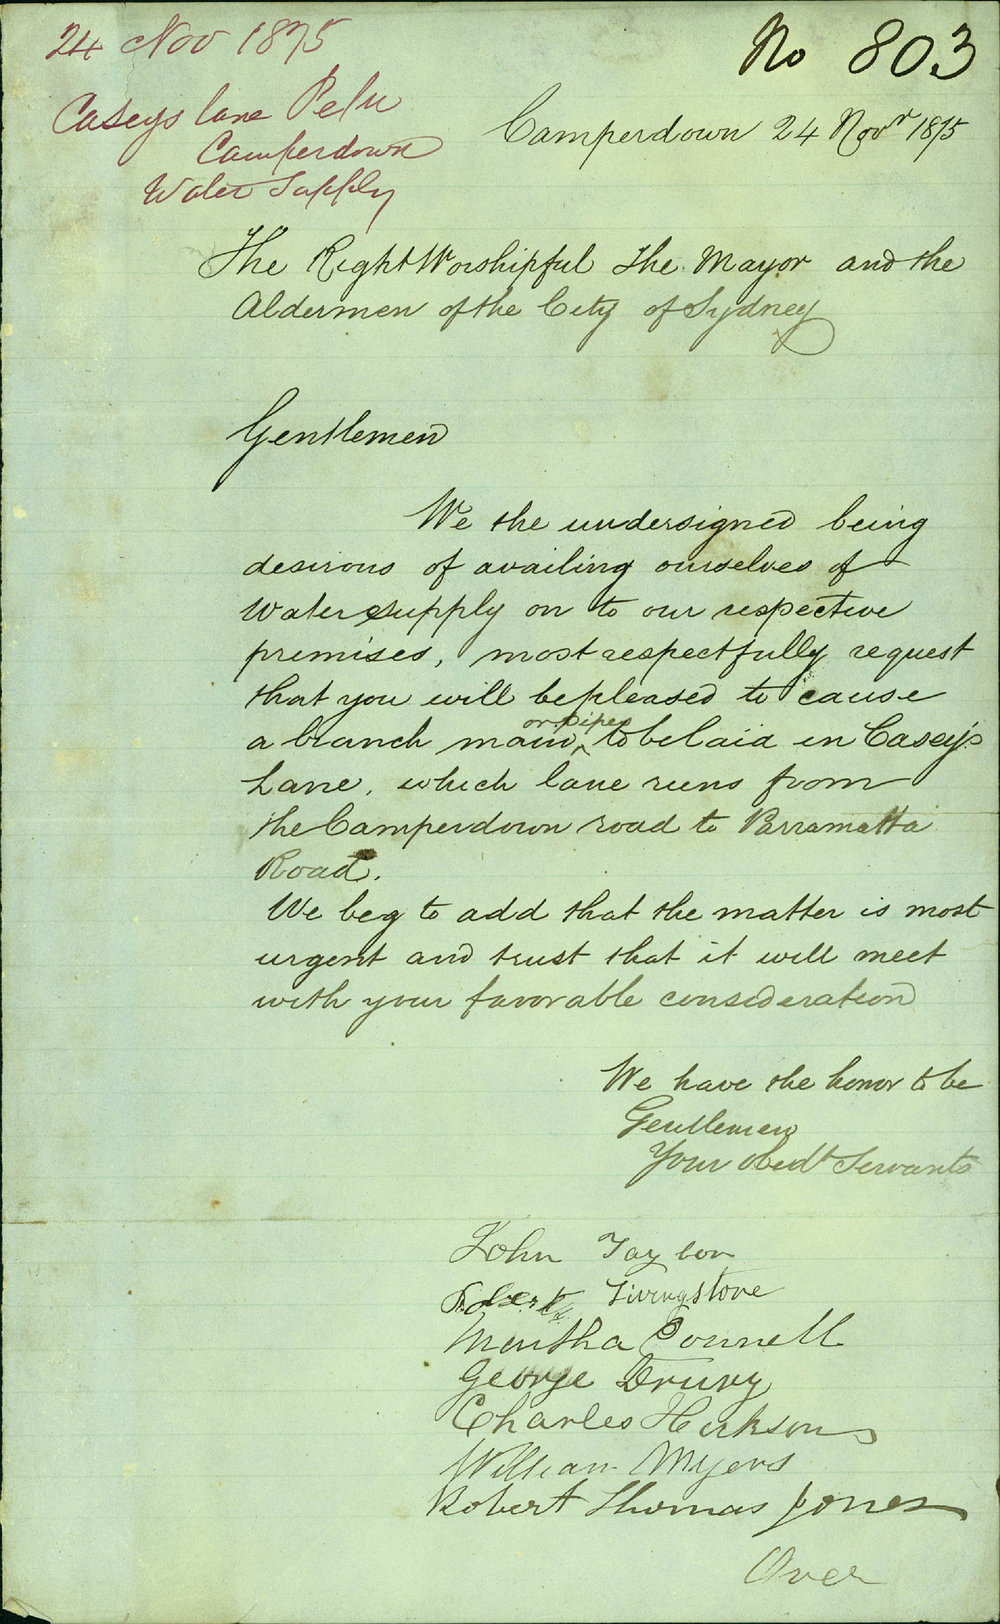 24 Nov 1875
No 803
Caseys lane Petn
Camperdown
Water Supply
Camperdown 24 Novr 1875
The Right Worshipful The Mayor and the
Aldermen of the City of Sydney
Gentlemen
We the undersigned being
desirous of availing ourselves of
Water supply on to our respective
premises, most respectfully request
that you will be pleased to cause
or pipes
a branch main ^ to be laid in Casey's
Lane, which lane runs from
the Camperdown road to Parramatta
Road.
We beg to add that the matter is most
urgent and trust that it will meet
with your favorable consideration
We have the honor to be
Gentlemen
Your obedt Servants
John Taylor
Livingstone
Martha Connell
George Drury
Charles
William Myers
Robert Thomas Jones
Over